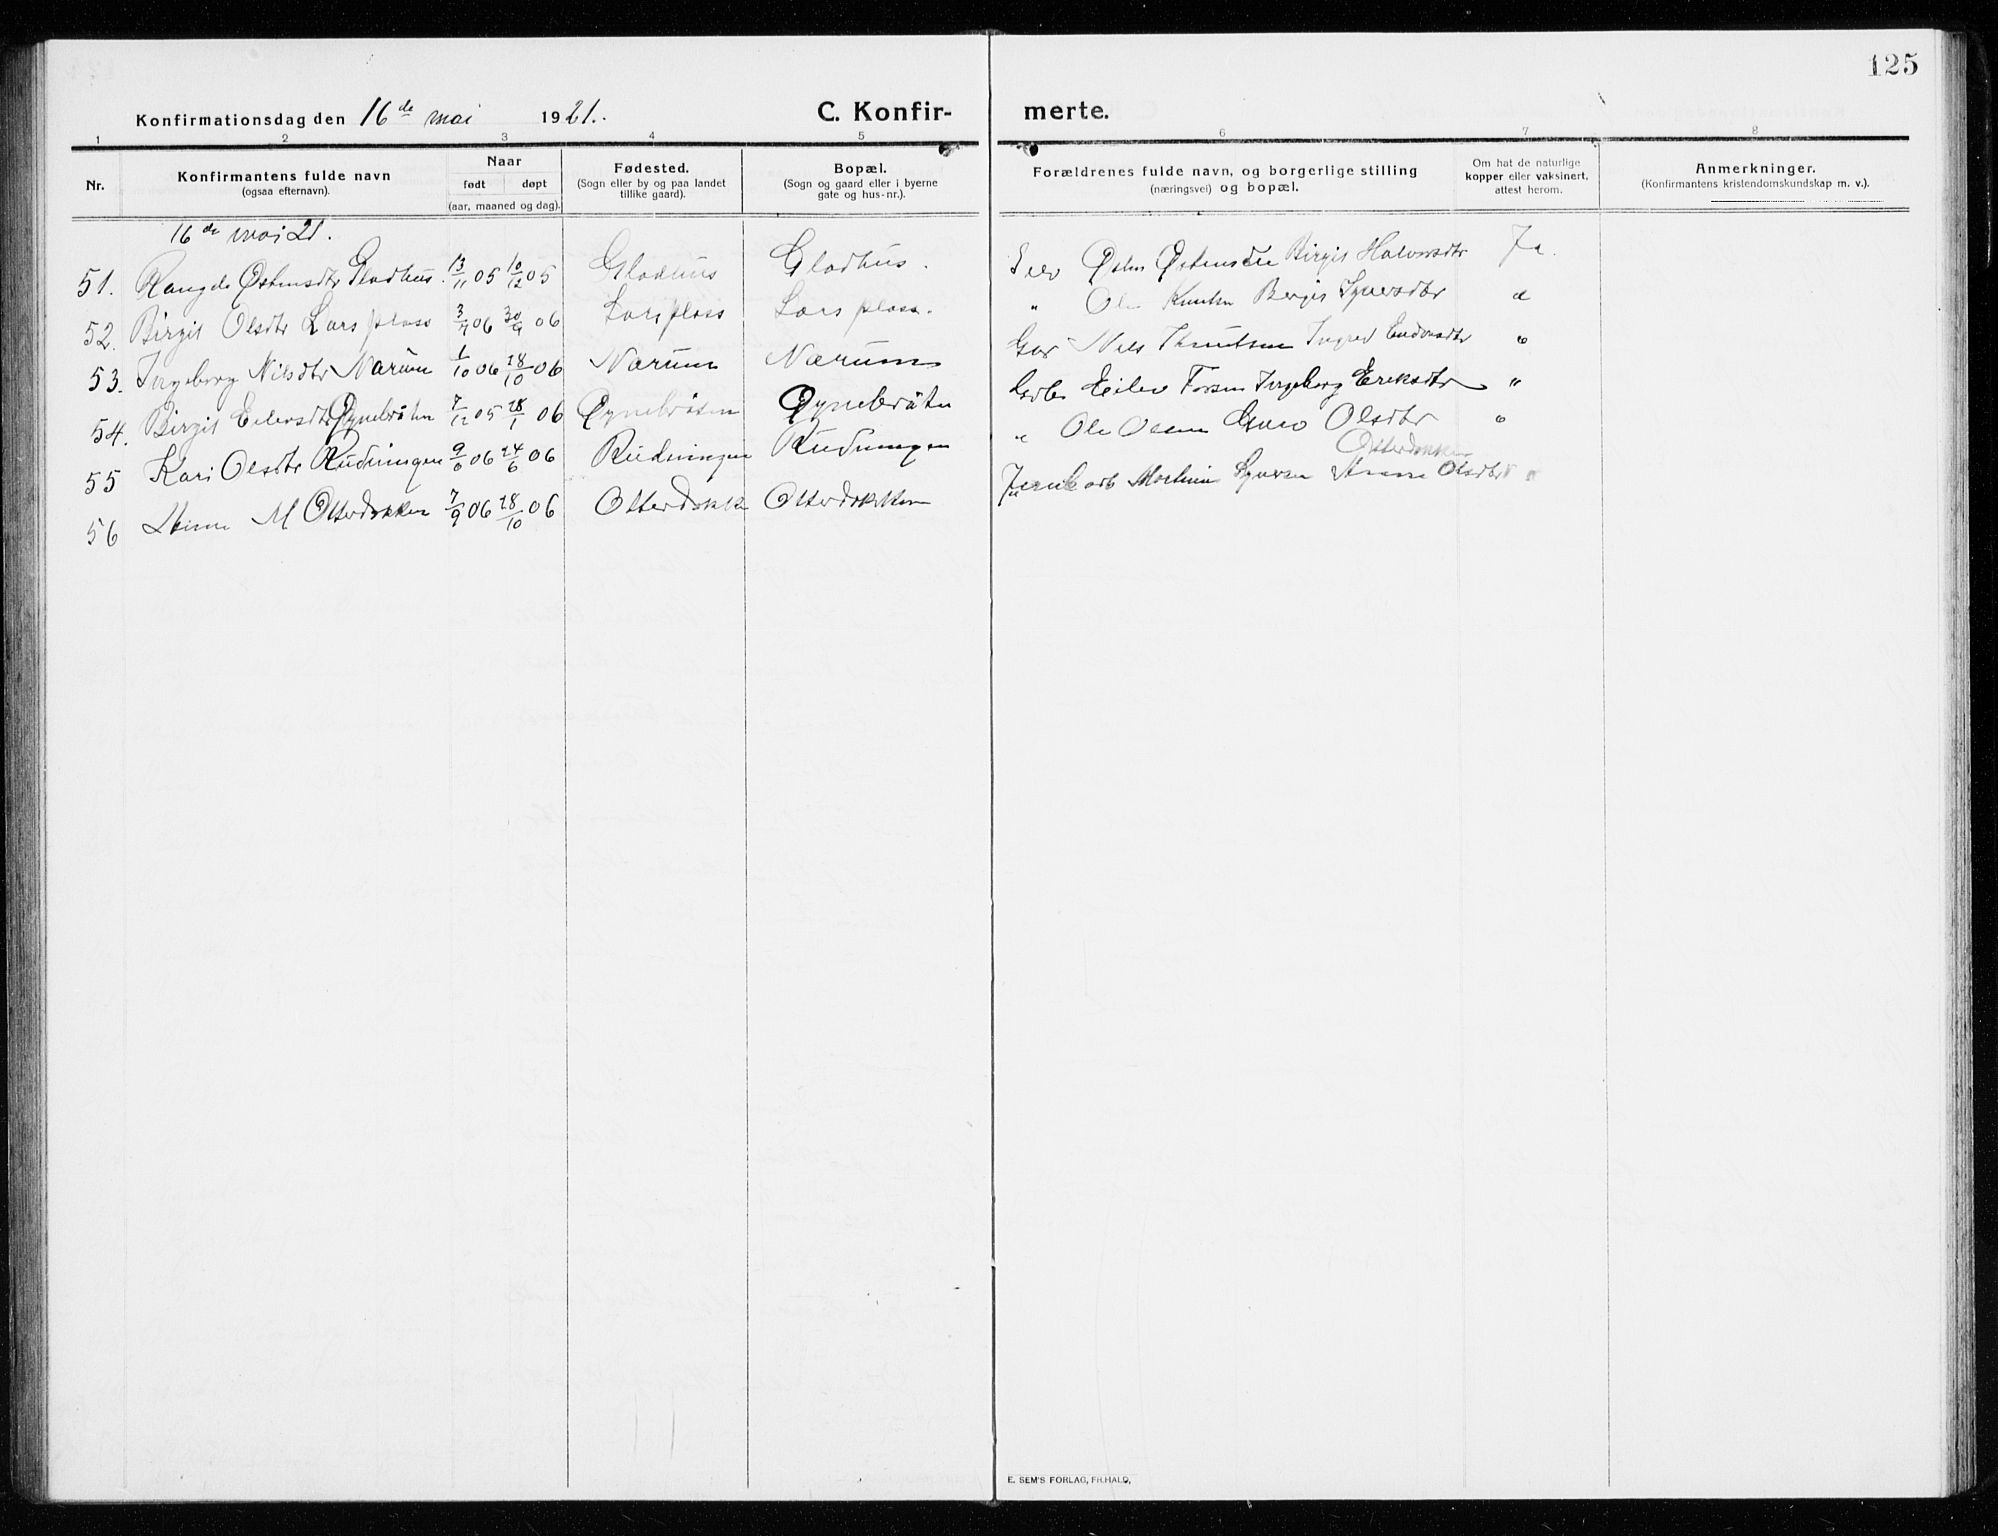 125
Konfirmationsdag den 16de mai 1921. C. Konfir- merte.
1 2 3 4 5 6 7 8
Nr. Konfirmantens fulde navn (ogsaa efternavn). Naar født døpt (aar, maaned og dag). Fødested. (Sogn eller by og paa landet tillike gaard). Bopæl. (Sogn og gaard eller i byerne gate og hus-nr.). Forældrenes fulde navn, og borgerlige stilling (næringsvei) og bopæl. Om hat de naturlige kopper eller vaksinert, attest herom. Anmerkninger. (Konfirmantens kristendomskundskap m. v.).
16de mai 21.
51. Østensdtr Gladhus. 13/11 05 10/12 05 Gladhus Gladhus. Østensen Birgit Halvorsdtr Ja.
52. Birgit Olsdtr Lars plass 3/9 06 30/9 06 Lars plass Lars plass. " Ole Knutsen Bergit Syversdtr "
53. Ingeborg Nilsdtr Narum 1/10 06 28/10 06 Narum Narum Nils Knutsen Ingrid "
54. Birgit Eilevsdtr Øynebråten 7/12 05 28/1 06 Øynebråten Øynebråten Eilev Ingeborg Eriksdtr "
55 Kari Olsdtr Rudningen 9/6 06 24/6 06 Rudningen Rudningen " Ole Olsen Guro Olsdtr "
Otterdokken
56 M Otterdokken 7/9 06 28/10 06 Otterdokk Otterdokken Syversen Anne Olsdtr "
E. SEM'S FORLAG, FR.HALD,